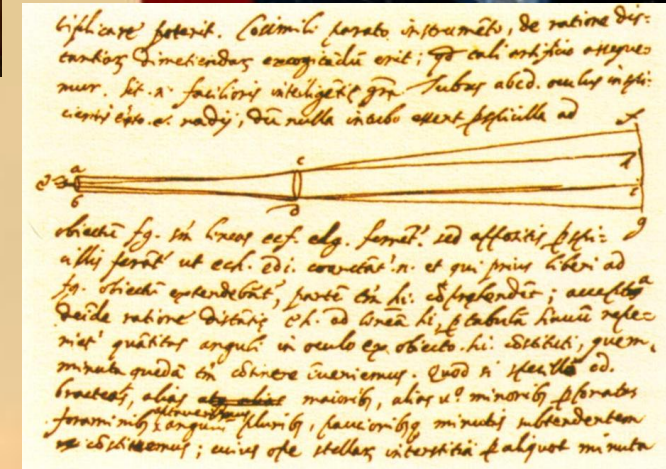 tiplicare poterit. Cosimili parato instrumẽto, de ratione dis=
tantiarꝫ dimetiendarꝫ excogitãdũ erit; qd tali artificio asseque=
mur. Sit .n. facilioris intelligẽtię grã Tubus abcd. oculus inspi=
cientis esto .e. radij, dũ nulla in tubo essent pspicilla ad
a c f
e h
b D i
g
obiectũ fg. sm̃ lineas ecf. edg. ferrẽt.' sed appositis pspi=
cillis ferãt' ut ech. edi. coarctãt' .n. et qui prius liberi ad
fg. obiectũ extendebãt', partẽ tm̃ hi. cõprehendẽt; accepta
deĩde ratione distãtię eh. ad lineã hi, p tabulã sinuũ repe=
riet' quãtitas anguli in oculo ex obiecto .hi. cõstituti, quem
minuta quedã tm̃ cõtinere ĩueniemus. Quod si specillo cd.
bracteas, alias maiorib, alias uº minorib pforatas
foraminib pluribꝫ, paucioribꝫq minutis subtendentem
cõstituemus; cuius ope stellarꝫ interstitia p aliquot minuta